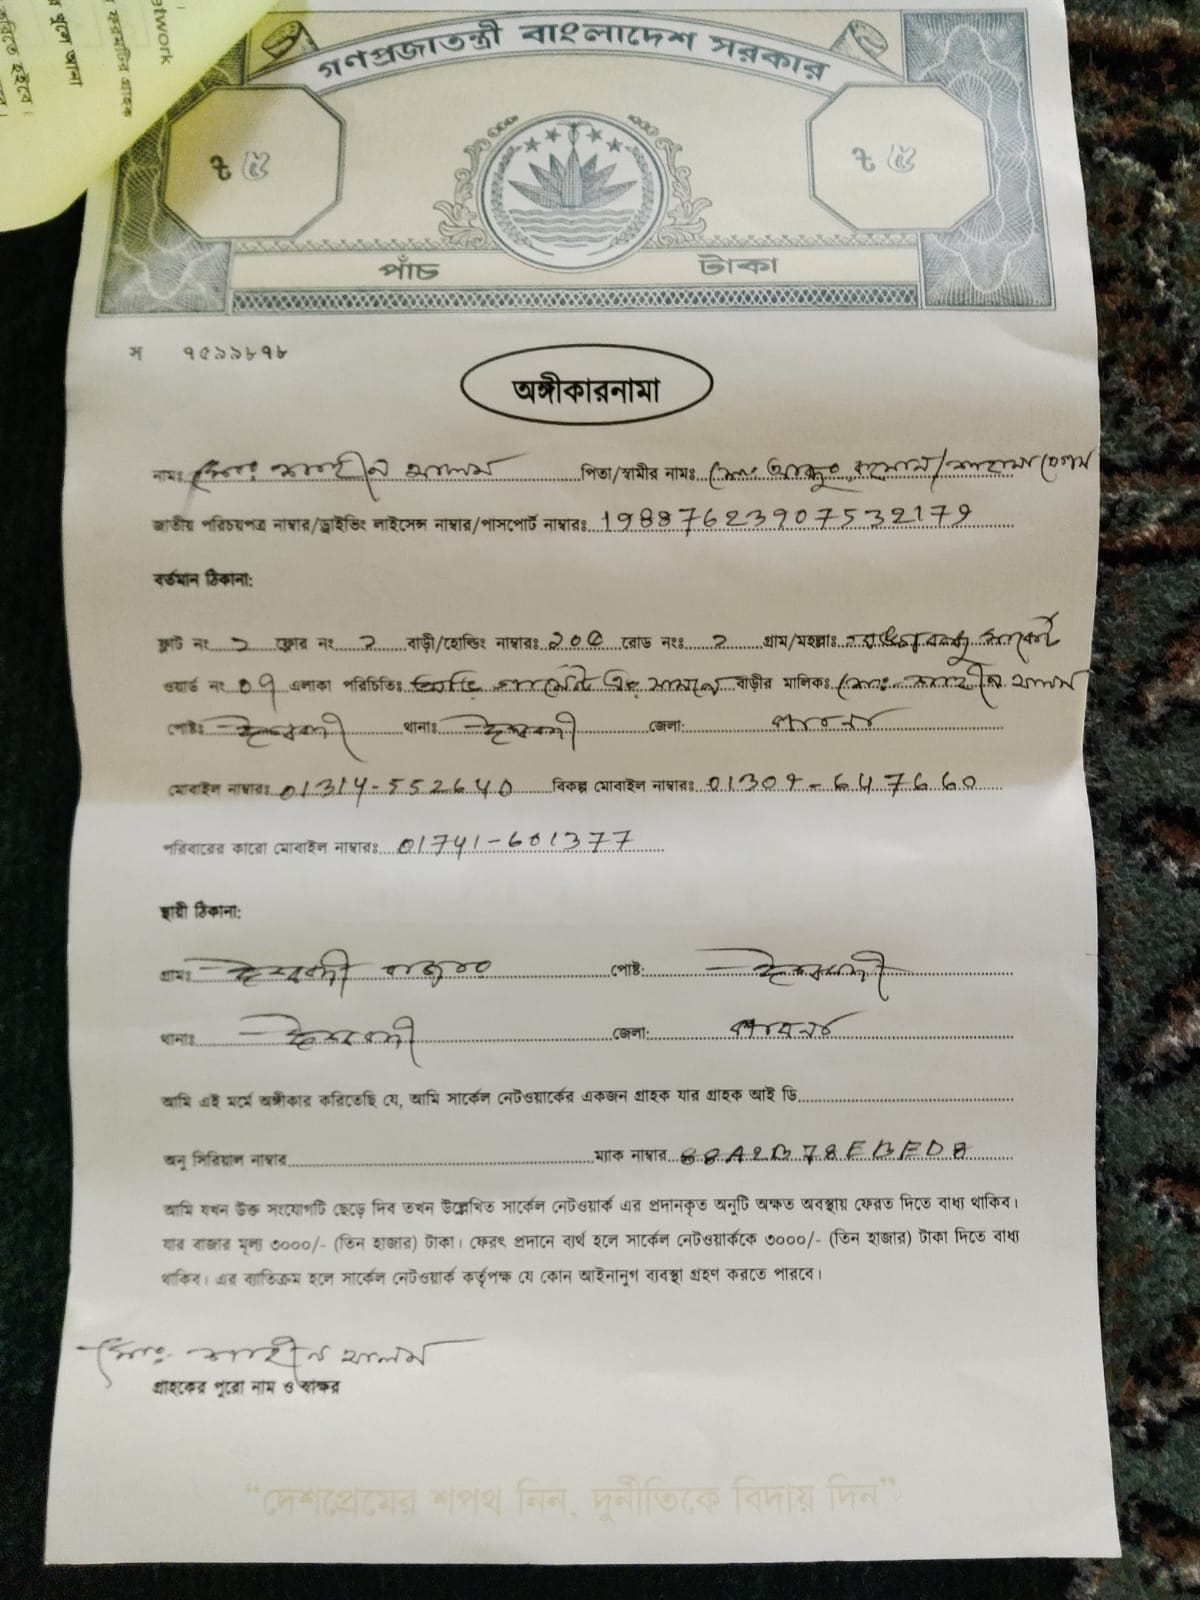 গণপ্রজাতন্ত্রী বাংলাদেশ সরকার
৳ ৫ ৳ ৫
পাঁচ টাকা
স ৭৫৯৯৮৭৮
অঙ্গীকারনামা
নামঃ মোঃ শাহীন আলম পিতা/স্বামীর নামঃ মোঃ
জাতীয় পরিচয়পত্র নাম্বার/ড্রাইভিং লাইসেন্স নাম্বার/পাসপোর্ট নাম্বারঃ 19887623907532179
বর্তমান ঠিকানা:
ফ্লাট নং ২ ফ্লোর নং ২ বাড়ী/হোল্ডিং নাম্বারঃ ২০৫ রোড নংঃ ২ গ্রাম/মহল্লাঃ
ওয়ার্ড নং 09 এলাকা পরিচিতিঃ বাড়ীর মালিকঃ মোঃ শাহীন আলম
পোষ্টঃ ঈশ্বরদী থানাঃ ঈশ্বরদী জেলা: পাবনা
মোবাইল নাম্বারঃ 01314-552640 বিকল্প মোবাইল নাম্বারঃ 01309-647660
পরিবারের কারো মোবাইল নাম্বারঃ 01741-601377
স্থায়ী ঠিকানা:
গ্রামঃ ঈশ্বরদী বাজার পোষ্ট: ঈশ্বরদী
থানাঃ ঈশ্বরদী জেলা: পাবনা
আমি এই মর্মে অঙ্গীকার করিতেছি যে, আমি সার্কেল নেটওয়ার্কের একজন গ্রাহক যার গ্রাহক আই ডি
অনু সিরিয়াল নাম্বার ম্যাক নাম্বার 88A2B78EBED8
আমি যখন উক্ত সংযোগটি ছেড়ে দিব তখন উল্লেখিত সার্কেল নেটওয়ার্ক এর প্রদানকৃত অনুটি অক্ষত অবস্থায় ফেরত দিতে বাধ্য থাকিব।
যার বাজার মূল্য ৩০০০/- (তিন হাজার) টাকা। ফেরৎ প্রদানে ব্যর্থ হলে সার্কেল নেটওয়ার্ককে ৩০০০/- (তিন হাজার) টাকা দিতে বাধ্য
থাকিব। এর ব্যতিক্রম হলে সার্কেল নেটওয়ার্ক কর্তৃপক্ষ যে কোন আইনানুগ ব্যবস্থা গ্রহণ করতে পারবে।
মোঃ শাহীন আলম
গ্রাহকের পুরো নাম ও স্বাক্ষর
"দেশপ্রেমের শপথ নিন, দুর্নীতিকে বিদায় দিন"